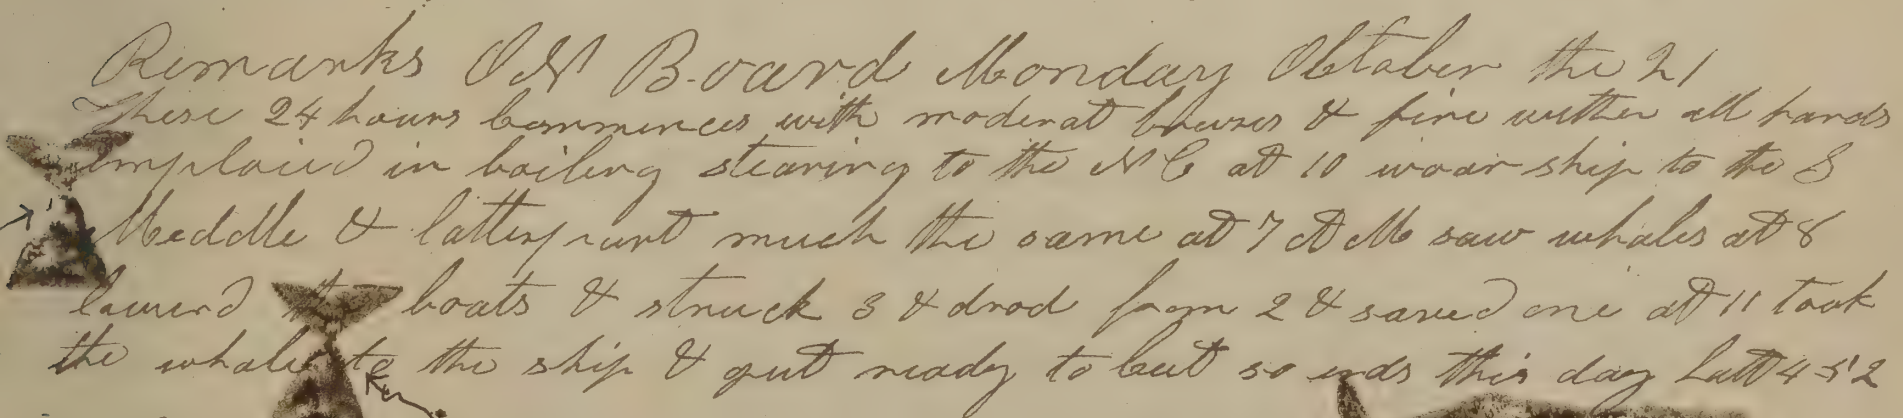 Remarks ON Board Monday October the 21
These 24 hours Commences with moderat breuzes & fine wether all hands
imploied in boiling stearing to the N E at 10 woar ship to the S
Meddle & latterpart much the same at 7 A M saw whales at 8
lowerd the boats & struck 3 & drod from 2 & saved one at 11 took
the whale to the ship & gut ready to Cut so ends this day Latt 4-52